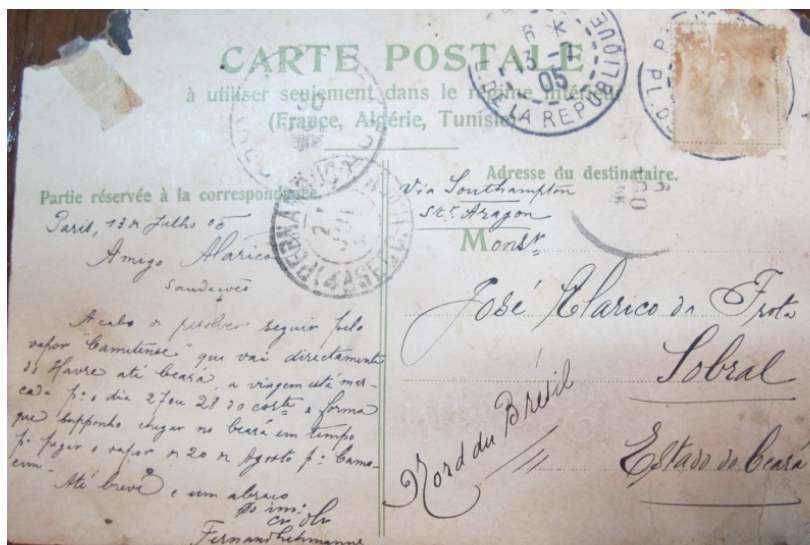 CARTE POSTALE
à utiliser seulement dans le régime intérieur
(France, Algérie, Tunisie)
13-7
05
DE LA REPUBLIQUE
Partie réservée à la correspondance.
Paris, 13 de Julho 05
Amigo Alarico
Saudações
Acabo de resolver seguir pelo
vapor "Cametense" que vai directamente
do Havre até Ceará, a viagem está mar-
cada pª o dia 27 ou 28 do corte de forma
que supponho chegar no Ceará em tempo
pª pegar o vapor de 20 de Agosto pª Camo-
cim
Até breve e um abraço
Adresse du destinataire.
Via Southampton
Str. Aragon
Monsr
José Alarico da Frota
Sobral
Estado do Ceará
Nord du Brésil